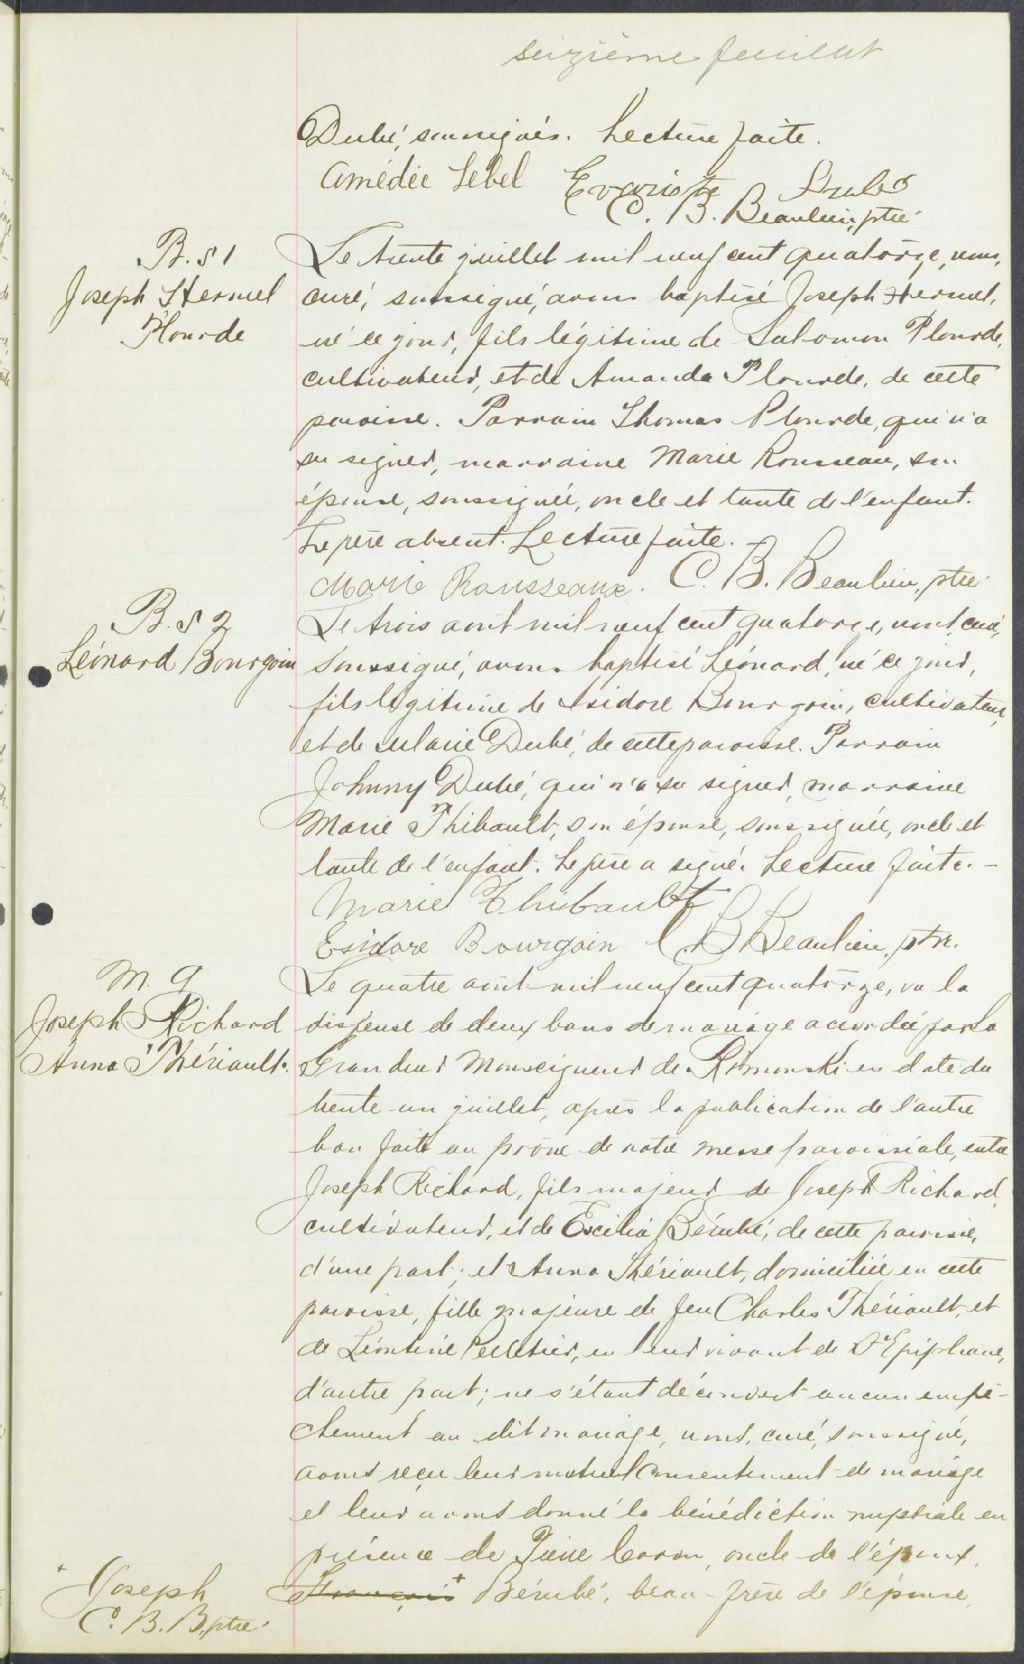 seizième feuillet
Dubé, soussignés. Lecture faite.
Amédée Lebel Evariste Dubé
C. B. Beaulieu, ptre
B. 51
Joseph Hermel
Plourde
Le trente juillet mil neuf cent quatorze, nous,
curé, soussigné, avons baptisé Joseph Hermel,
né ce jour, fils légitime de Salomon Plourde,
cultivateur, et de Amanda Plourde, de cette
paroisse. Parrain Thomas Plourde, qui n'a
su signer, marraine Marie Rousseau, son
épouse, soussignée, oncle et tante de l'enfant.
Le père absent. Lecture faite.
Marie Rousseaux. C. B. Beaulieu, ptre
B. 52
Léonard Bourgoin
Le trois août mil neuf cent quatorze, nous, curé,
soussigné, avons baptisé Léonard, né ce jour,
fils légitime de Isidore Bourgoin, cultivateur,
et de Marie Dubé, de cette paroisse. Parrain
Johnny Dubé, qui n'a su signer, marraine
Marie Thibault, son épouse, soussignée, oncle et
tante de l'enfant. Le père a signé. Lecture faite. -
Marie Thibault
Esidore Bourgoin C B Beaulieu, ptre.
M. 9
Joseph Richard
Anna Thériault.
Le quatre août mil neuf cent quatorze, vu la
dispense de deux bans de mariage accordée par Sa
Grandeur Monseigneur de Rimouski en date du
trente un juillet, après la publication de l'autre
ban faite au prône de notre messe paroissiale, entre
Joseph Richard, fils majeur de Joseph Richard,
cultivateur, et de Excilia Bérubé, de cette paroisse,
d'une part; et Anna Thériault, domiciliée en cette
paroisse, fille majeure de feu Charles Thériault, et
de Léontine Pelletier, en leur vivant de St Epiphane,
d'autre part; ne s'étant découvert aucun empê-
chement au dit mariage, nous, curé, soussigné,
avons reçu leur mutuel consentement de mariage
et leur avons donné la bénédiction nuptiale en
présence de Pierre Caron, oncle de l'époux,
François + Bérubé, beau-frère de l'épouse,
+ Joseph
C. B. B. ptre.